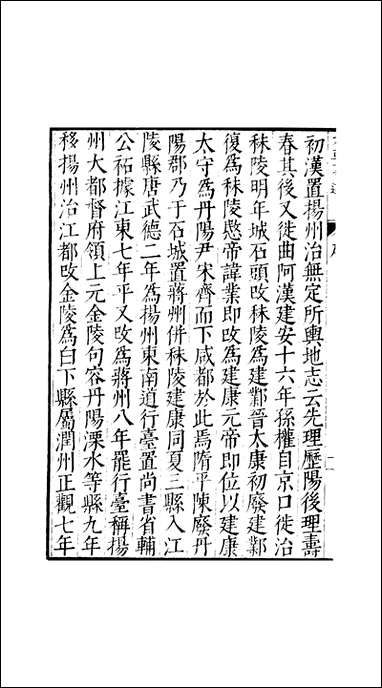 初漢置揚州治無定所輿地志云先理歷陽後理壽
春其後又徙曲阿漢建安十六年孫權自京口徙治
秣陵明年城石頭改秣陵為建鄴晉太康初廢建鄴
復為秣陵愍帝諱業即改為建康元帝即位以建康
太守為丹陽尹宋齊而下咸都於此焉隋平陳廢丹
陽郡乃于石城置蔣州併秣陵建康同夏三縣入江
陵縣唐武德二年為揚州東南道行臺置尚書省輔
公祏據江東七年平又改為蔣州八年罷行臺稱揚
州大都督府領上元金陵句容丹陽溧水等縣九年
移揚州治江都改金陵為白下縣屬潤州正觀七年